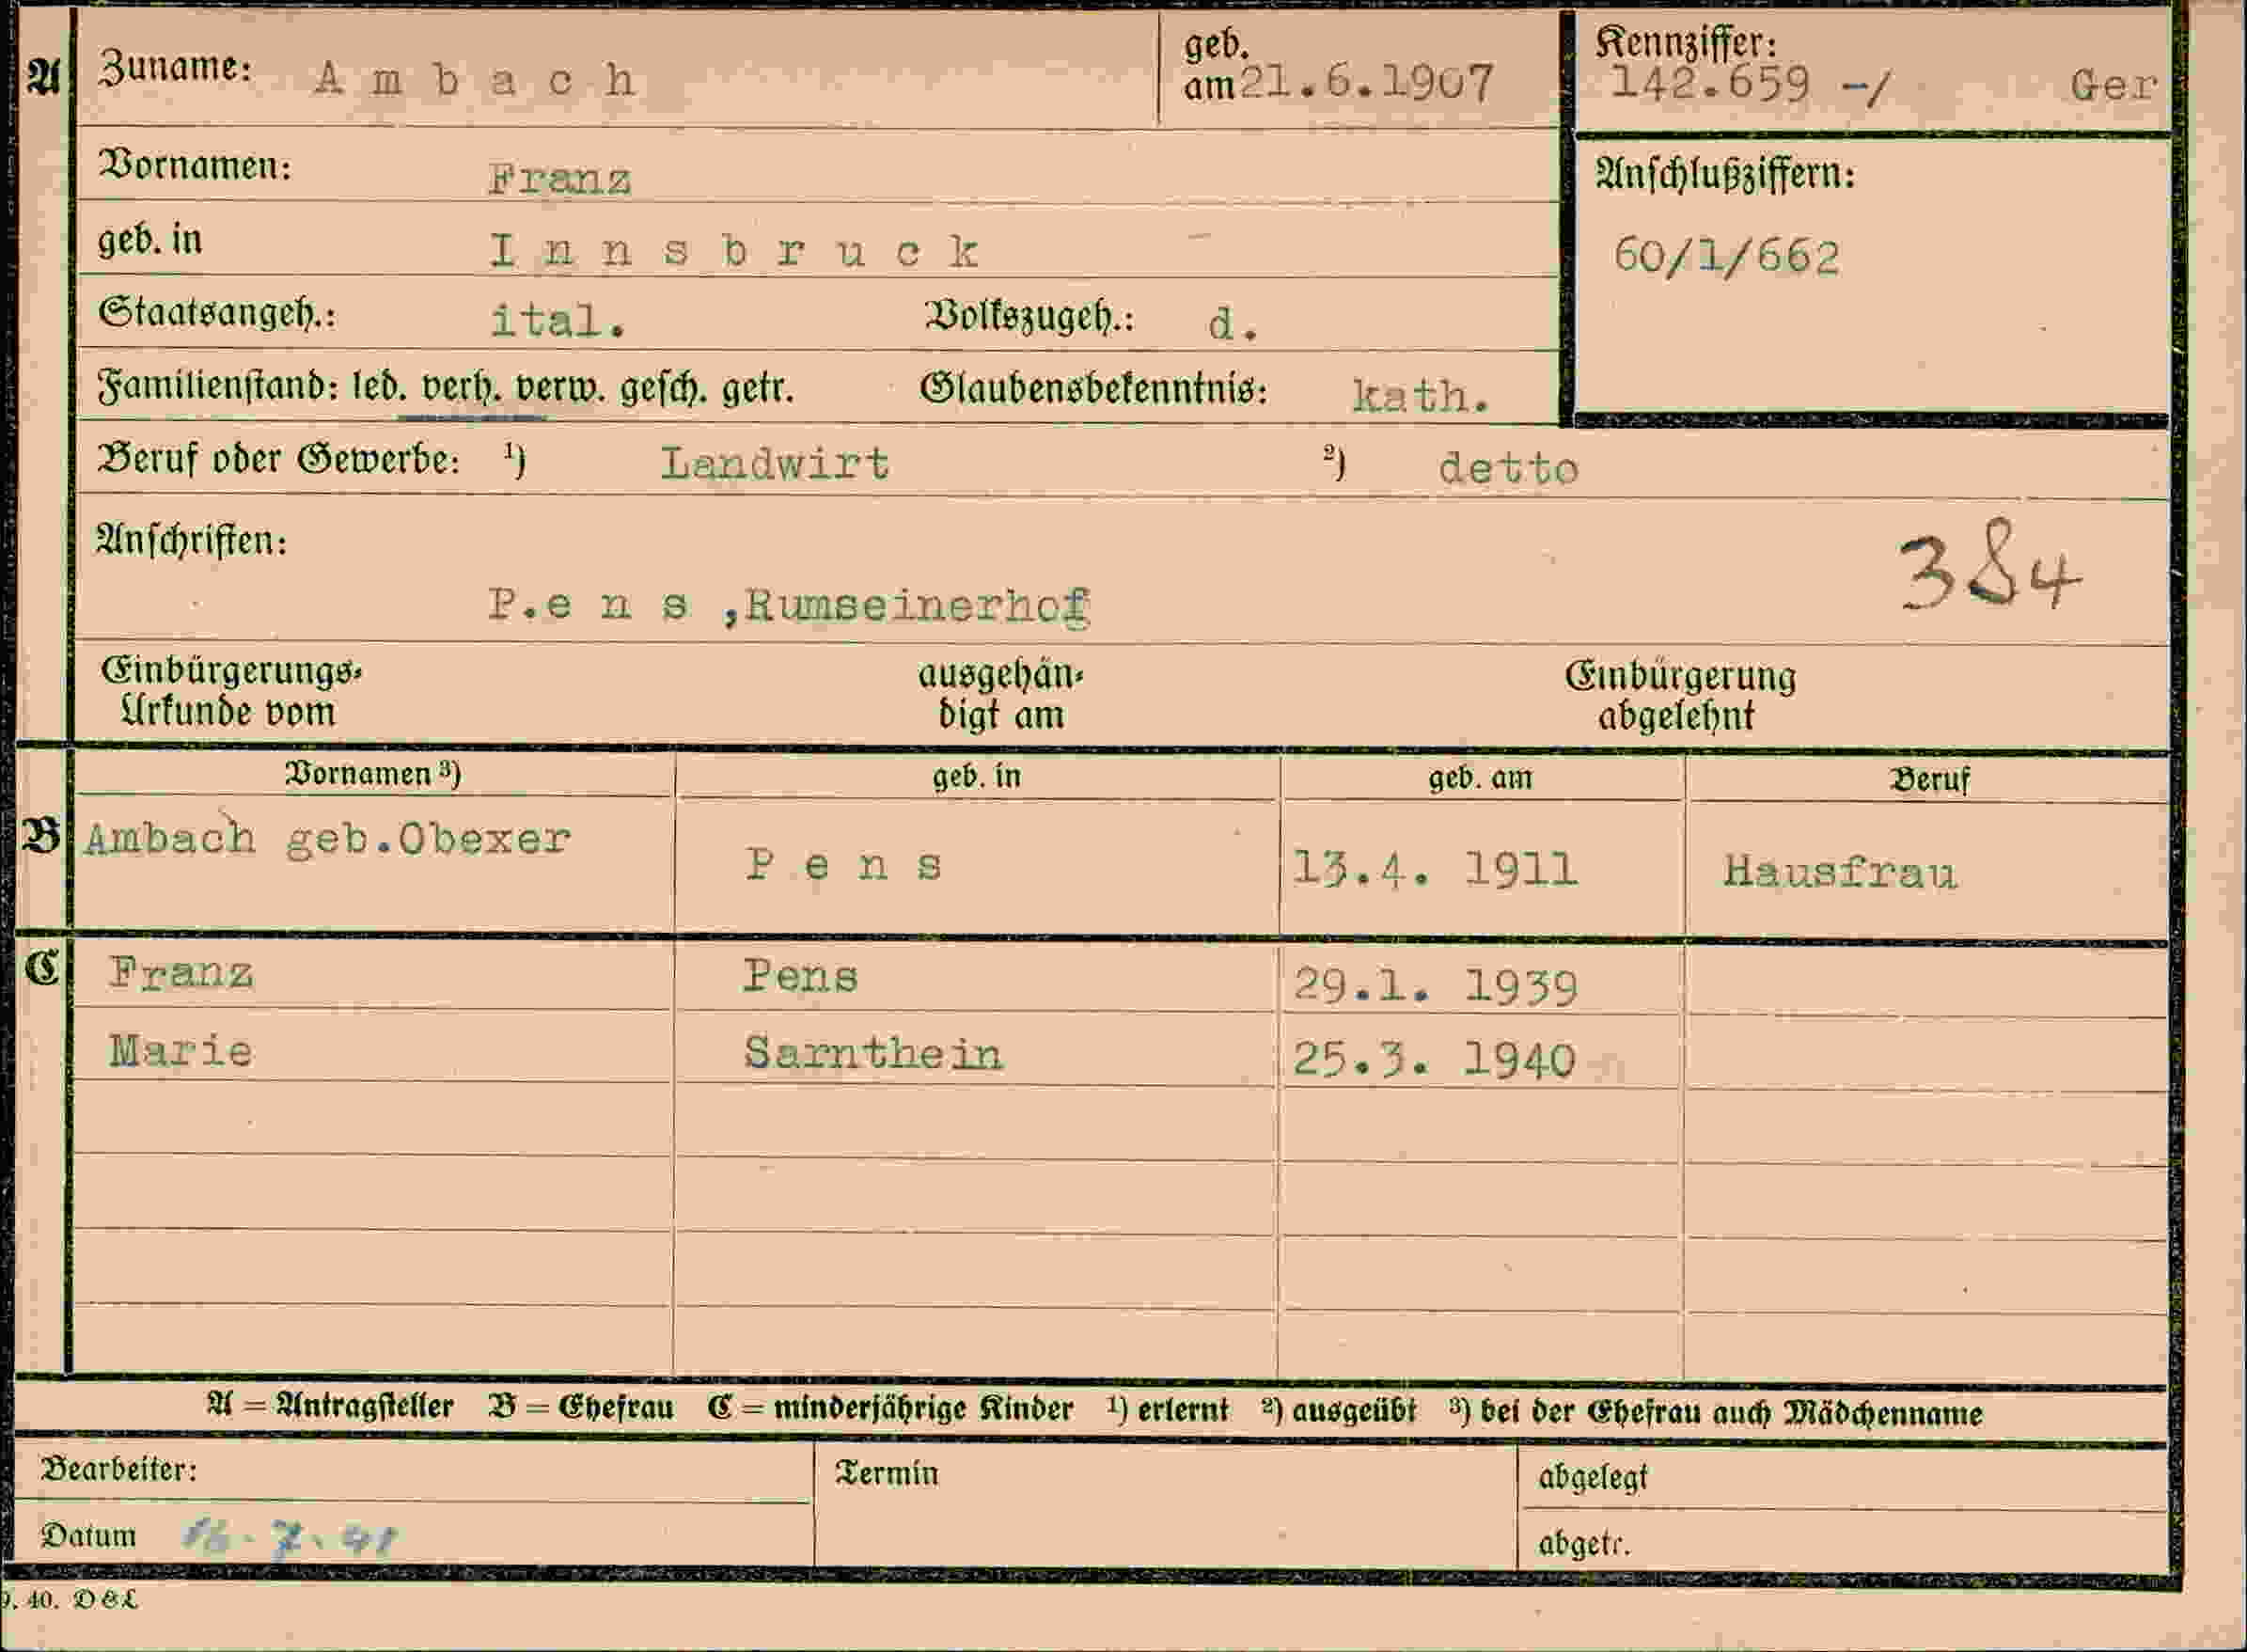 A Zuname: A m b a c h geb. am 21.6.1907 Kennziffer: 142.659 -/ Ger
Vornamen: Franz Anschlußziffern:
geb. in I n n s b r u c k 60/1/662
Staatsangeh.: ital. Volkszugeh.: d.
Familienstand: led. verh. verw. gesch. getr. Glaubensbekenntnis: kath.
Beruf oder Gewerbe: ¹) Landwirt ²) detto
Anschriften: 384
P.e n s ,Rumseinerhof
Einbürgerungs- ausgehän- Einbürgerung
Urkunde vom digt am abgelehnt
Vornamen ³) geb. in geb. am Beruf
B Ambach geb.Obexer P e n s 13.4. 1911 Hausfrau
C Franz Pens 29.1. 1939
Marie Sarnthein 25.3. 1940
A = Antragsteller B = Ehefrau C = minderjährige Kinder ¹) erlernt ²) ausgeübt ³) bei der Ehefrau auch Mädchenname
Bearbeiter: Termin abgelegt
Datum abgetr.
. 40. D&L